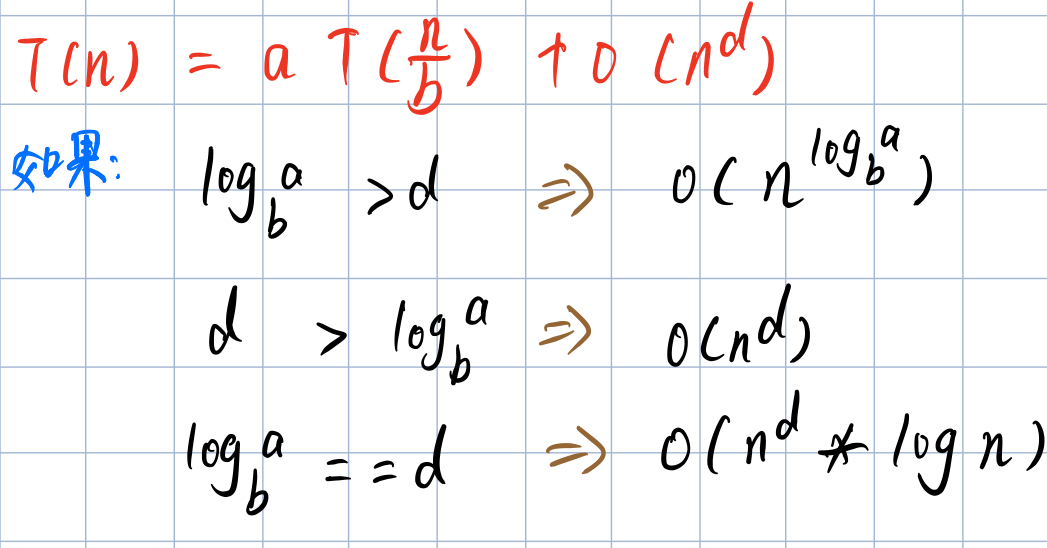 T(n) = a T(n/b) + O(n^d)
如果: log_b^a > d ⇒ O(n^(log_b^a))
d > log_b^a ⇒ O(n^d)
log_b^a == d ⇒ O(n^d * log n)